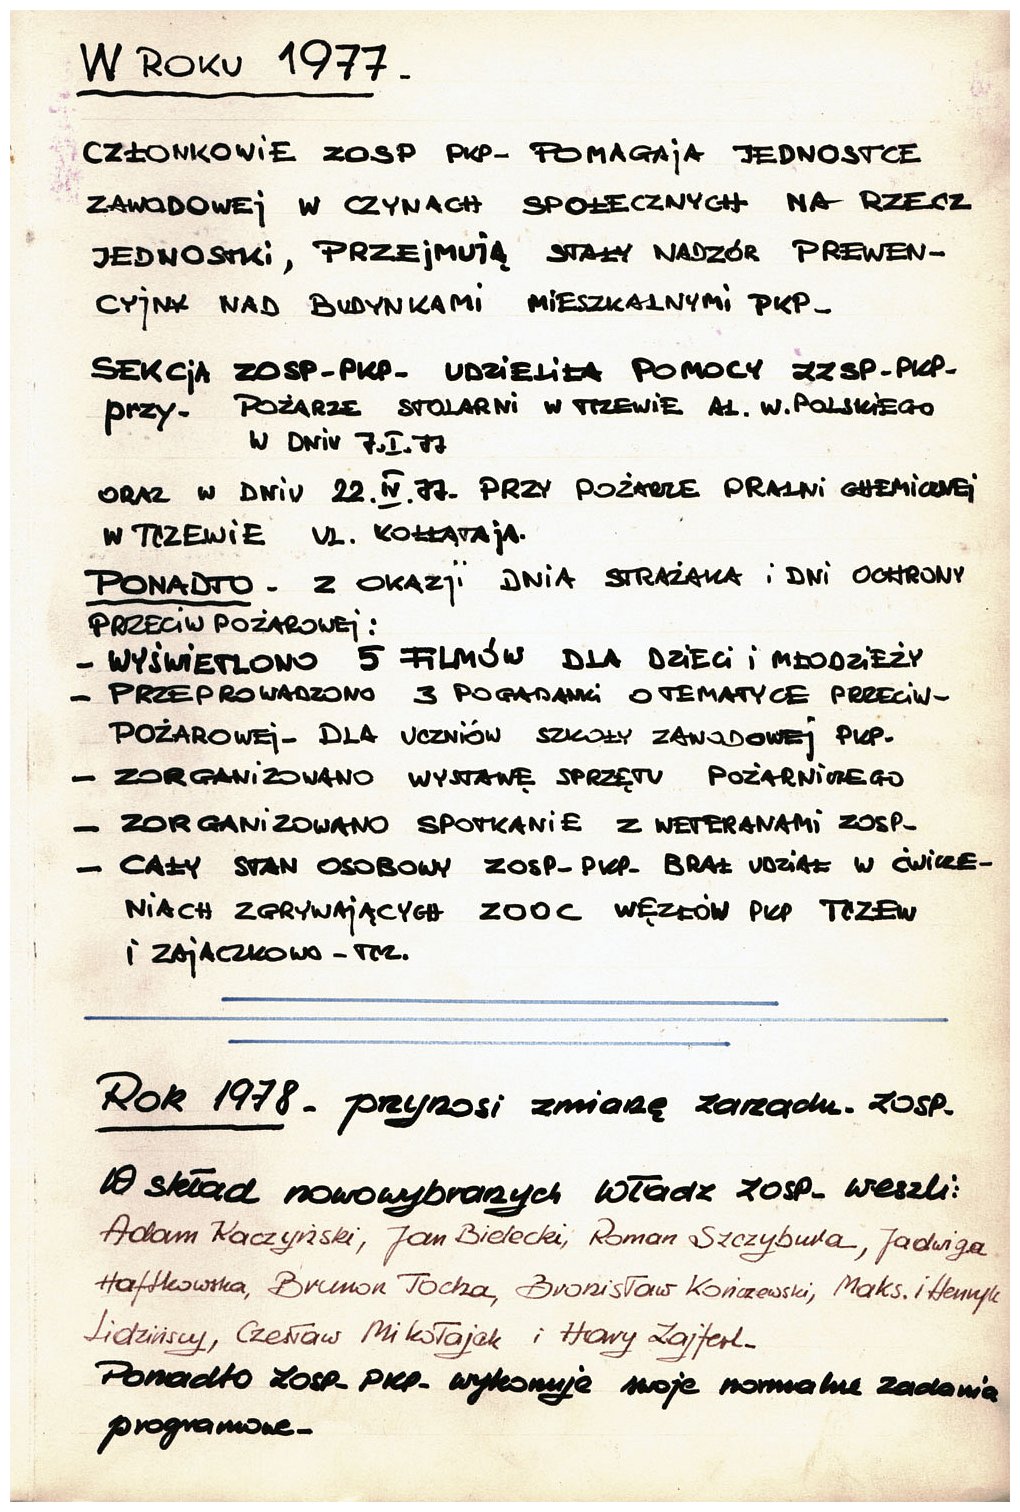 W ROKU 1977.
CZŁONKOWIE ZOSP PKP- POMAGAJA JEDNOSTCE
ZAWODOWEJ W CZYNACH SPOŁECZNYCH NA RZECZ
JEDNOSTKI, PRZEJMUJĄ STAŁY NADZÓR PREWEN-
CYJNY NAD BUDYNKAMI MIESZKALNYMI PKP-
SEKCJA ZOSP-PKP- UDZIELIŁA POMOCY ZZSP-PKP-
przy- POŻARZE STOLARNI W TCZEWIE AL. W. POLSKIEGO
W DNIU 7.I.77
ORAZ W DNIU 22.IV.77- PRZY POŻARZE PRALNI CHEMICZNEJ
W TCZEWIE UL. KOŁŁĄTAJA.
PONADTO - Z OKAZJI DNIA STRAŻAKA I DNI OCHRONY
PRZECIW POŻAROWEJ:
- WYŚWIETLONO 5 FILMÓW DLA DZIECI I MŁODZIEŻY
- PRZEPROWADZONO 3 POGADANKI O TEMATYCE PRZECIW-
POŻAROWEJ- DLA UCZNIÓW SZKOŁY ZAWODOWEJ PKP.
- ZORGANIZOWANO WYSTAWĘ SPRZĘTU POŻARNICZEGO
- ZORGANIZOWANO SPOTKANIE Z WETERANAMI ZOSP-
- CAŁY STAN OSOBOWY ZOSP-PKP- BRAŁ UDZIAŁ W ĆWICZE-
NIACH ZGRYWAJĄCYCH ZOOC WĘZŁÓW PKP TCZEW
I ZAJACZKOWO - TCZ.
Rok 1978- przynosi zmianę zarządu- ZOSP-
W skład nowowybranych władz ZOSP- weszli:
Adam Kaczyński, Jan Bielecki, Roman Szczybura, Jadwiga
Haftkowska, Brunon Tocha, Bronisław Kończewski, Maks. i Henryk
Lidzińscy, Czesław Mikołajek i Hary Zajfert-
Ponadto ZOSP- PKP- wykonuje swoje normalne zadania
programowe-